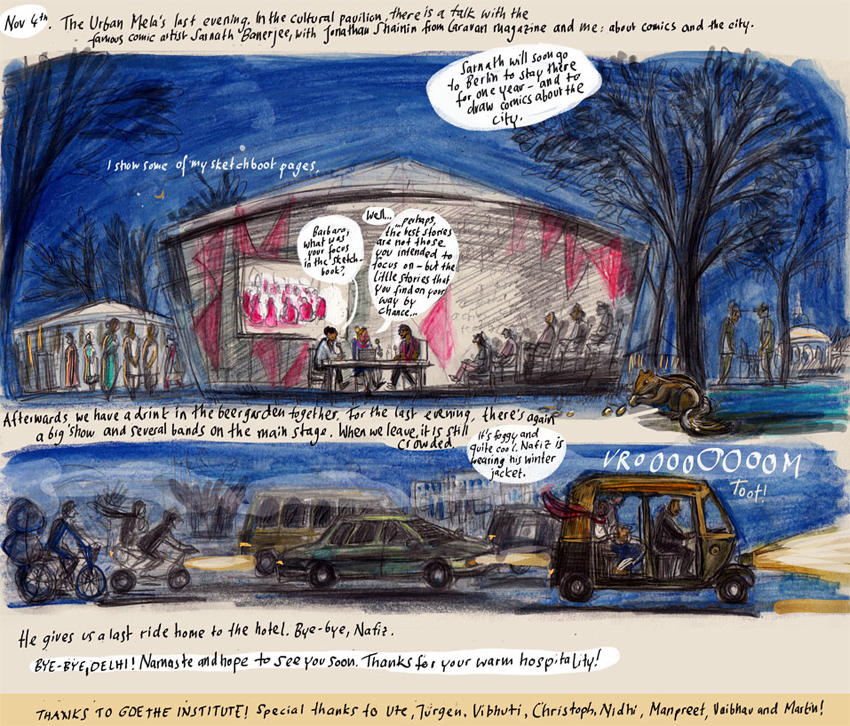 Nov 4th. The Urban Mela's last evening. In the cultural pavilion, there is a talk with the
famous comic artist Sarnath Banerjee, with Jonathan Shainin from Caravan magazine and me: about comics and the city.
Sarnath will soon go
to Berlin to stay there
for one year - and to
draw comics about the
city.
I show some of my sketchbook pages.
Barbara,
what was
your focus
in the sketch-
book?
Well...
...perhaps,
the best stories
are not those
you intended to
focus on - but the
little stories that
you find on your
way by
chance...
Afterwards, we have a drink in the beergarden together. For the last evening, there's again
a big show and several bands on the main stage. When we leave, it is still
crowded.
It's foggy and
quite cool. Nafiz is
wearing his winter
jacket.
VROOOOOOOOM
Toot!
He gives us a last ride home to the hotel. Bye-bye, Nafiz.
BYE-BYE, DELHI! Namaste and hope to see you soon. Thanks for your warm hospitality!
THANKS TO GOETHE INSTITUTE! Special thanks to Ute, Jürgen, Vibhuti, Christoph, Nidhi, Manpreet, Vaibhav and Martin!